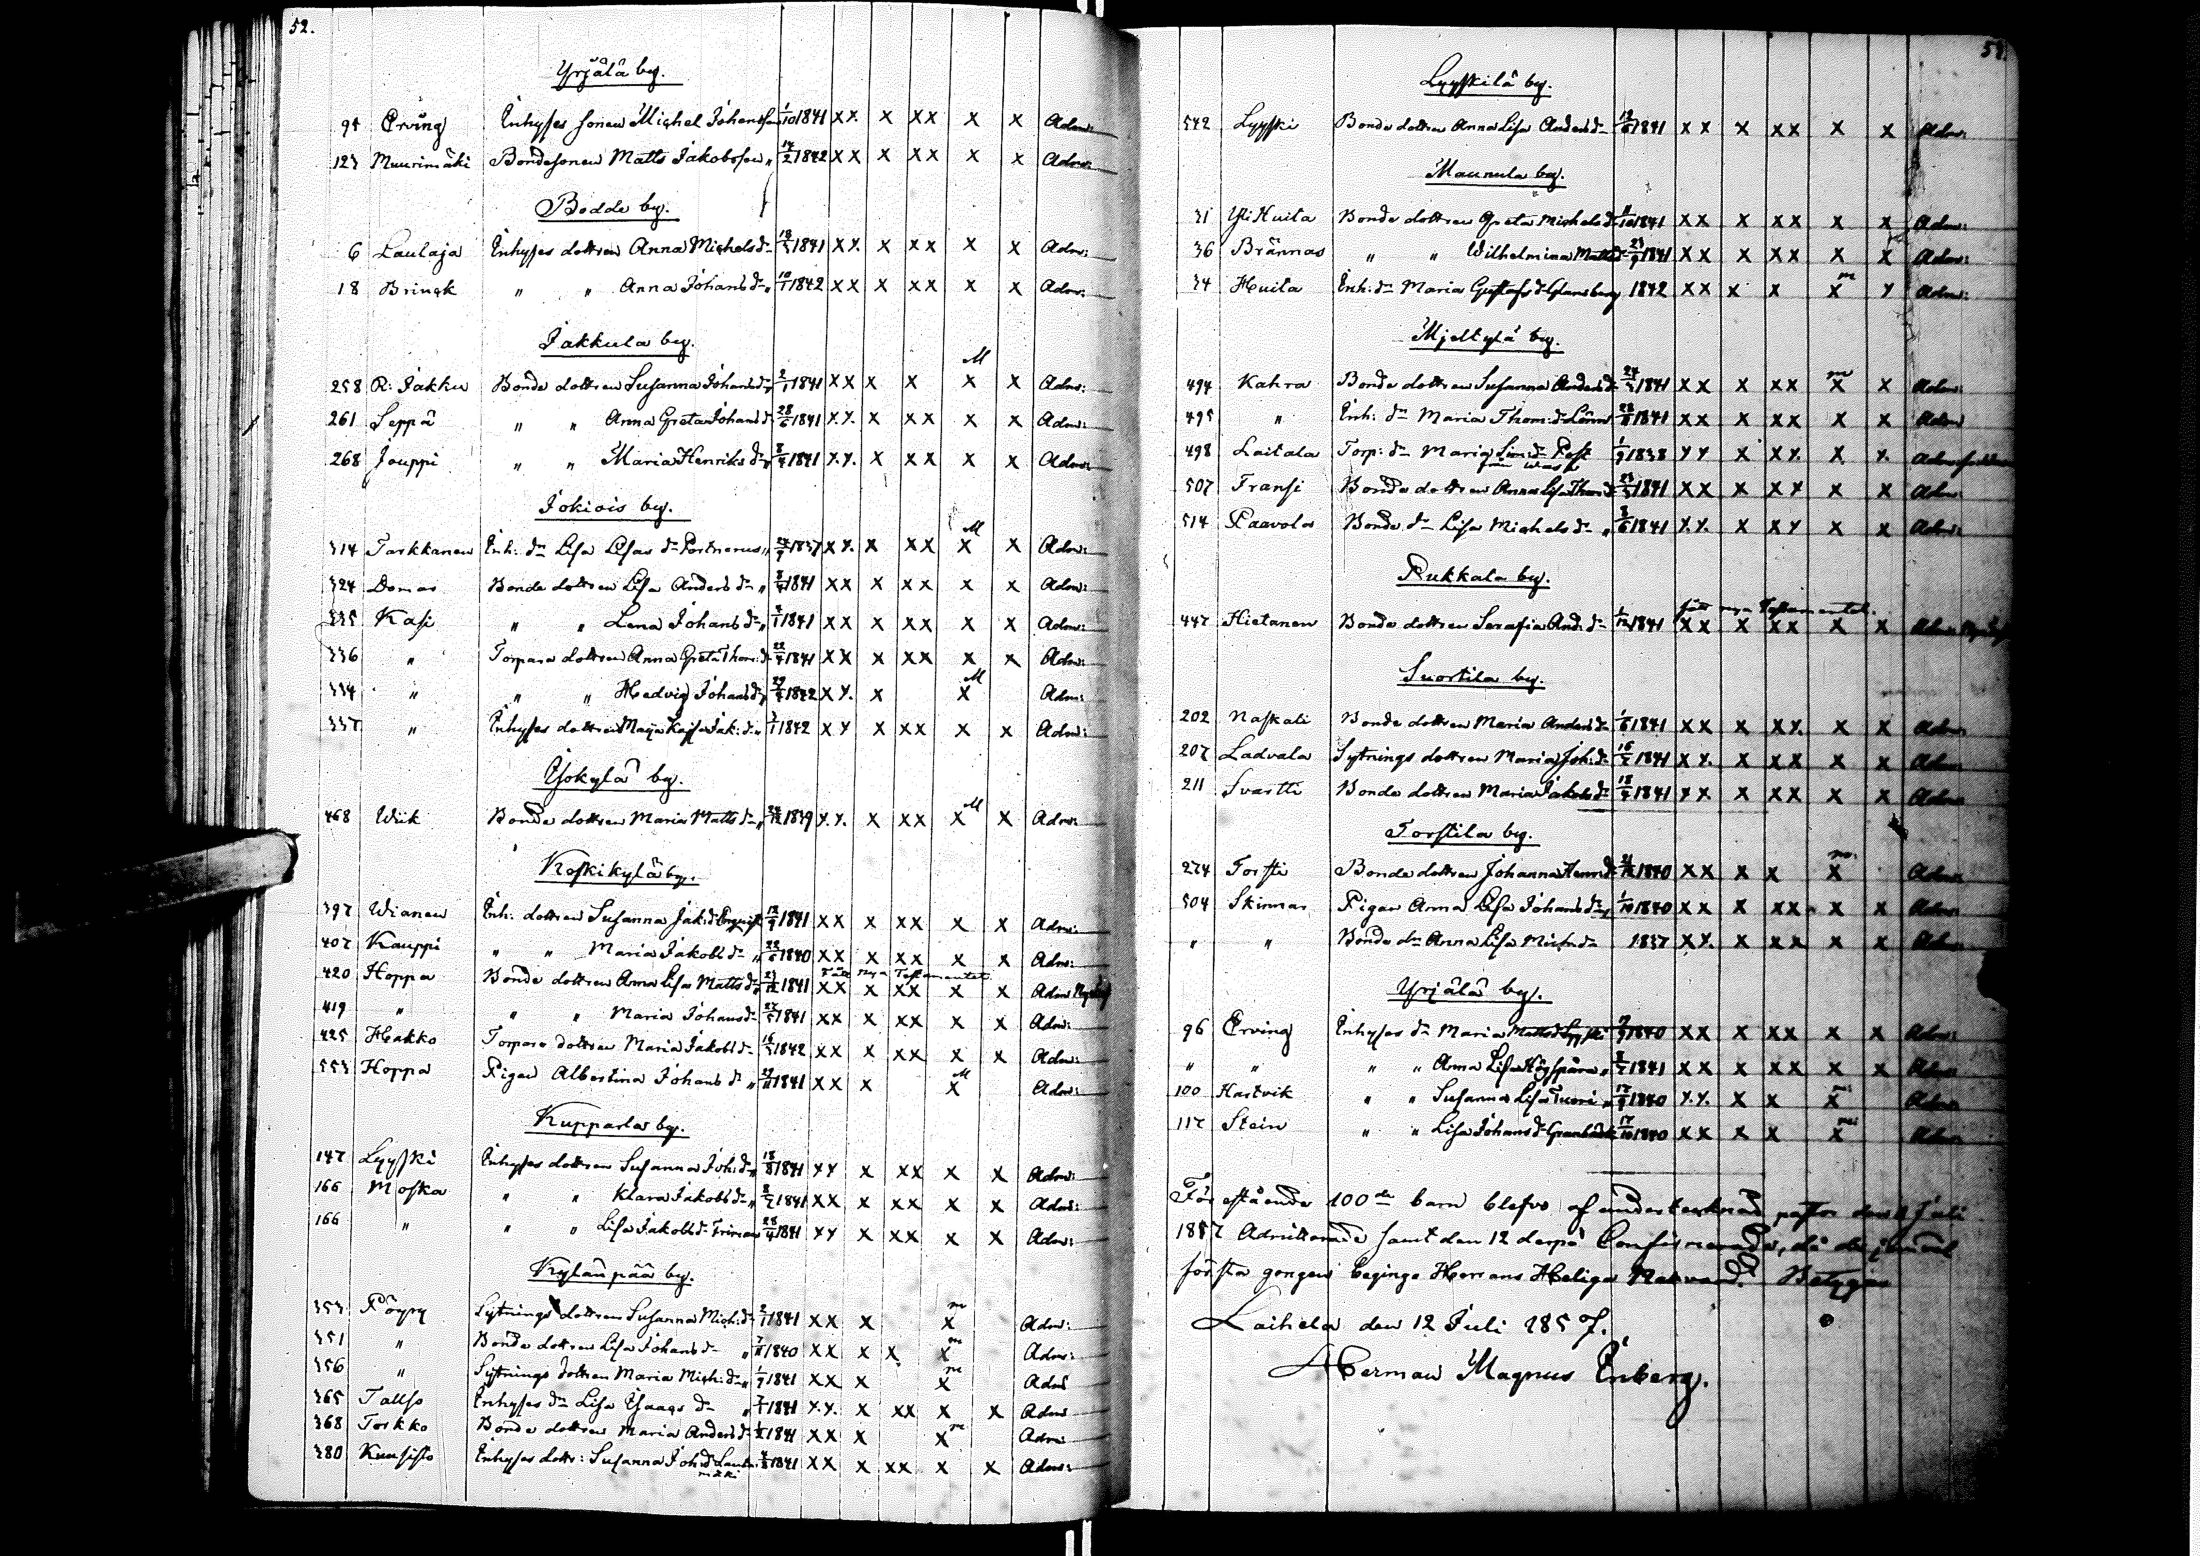 52.
Yrjälä by.
95 Erving Inhyses sonen Michel Johansson 1/10 1841 xx x xx x x Adm:
123 Muurimäki Bondesonen Matts Jakobsson 14/2 1842 xx x xx x x Adm:
Bodde by.
6 Laulaja Inhyses dottren Anna Michelsdr 18/5 1841 xx x xx x x Adm:
18 Brinck " " Anna Johansdr 10/1 1842 xx x xx x x Adm:
Jakkula by.
M
258 R: Jakku Bonde dottren Susanna Johansdr 2/1 1841 xx x x x x Adm:
261 Seppä " " Anna Greta Johansdr 28/6 1841 xx x xx x x Adm:
268 Jouppi " " Maria Henriksdr 1841 xx x xx x x Adm:
Jokiois by.
M
314 Tarkkanen Inh: dr Lisa Lisas dr Portnerus 1837 xx x xx x x Adm:
324 Domar Bonde dottren Lisa Andersdr 1841 xx x xx x x Adm:
335 Kasi " " Lena Johansdr 1841 xx x xx x x Adm:
336 " Torpare dottren Anna Greta Thom: dr 1841 xx x xx x x Adm:
M
334 " " " Hedvig Johansdr 1842 xx x x Adm:
337 " Inhyses dottren Maja Kajsa Jak: dr 1842 xx x xx x x Adm:
Isokylä by.
M
468 Wiik Bonde dottren Maria Mattsdr 1839 xx x xx x x Adm:
Koskikylä by.
397 Wianen Inh: dottren Susanna Jak: dr 1841 xx x xx x x Adm:
407 Kauppi " " Maria Jakobsdr 1840 xx x xx x x Adm:
Fått nya Testamentet
420 Hoppa Bonde dottren Anna Lisa Mattsdr 1841 xx x xx x x Adm
419 " " " Maria Johansdr 27/5 1841 xx x xx x x Adm:
425 Hakko Torpare dottren Maria Jakobsdr 1842 xx x xx x x Adm:
M
553 Hoppa Pigan Albertina Johansdr 1841 xx x x Adm:
Kupparla by.
147 Lyyski Inhyses dottren Susanna Joh: dr 18/8 1841 xx x xx x x Adm:
166 Moska " " Klara Jakobsdr 1841 xx x xx x x Adm:
166 " " " Lisa Jakobsdr Friman 1841 xx x xx x x Adm:
Kylänpää by.
m
353 Pöyry Sytnings dottren Susanna Mich: dr 2/1 1841 xx x x Adm:
m
351 " Bonde dottren Lisa Johansdr 1840 xx x x x Adm:
m
356 " Sytnings dottren Maria Mich: dr 1/9 1841 xx x x Adm
365 Tallso Inhyses dr Lisa Isaacs dr 1841 xx x xx x x Adm
m
368 Torkko Bonde dottren Maria Andersdr 1841 xx x x Adm
380 Kuusisto Inhyses dottr: Susanna Joh: dr Lauta- 1841 xx x xx x x Adm:
mäki
Lyyskilä by.
542 Lyyski Bonde dottren Anna Lisa Andersdr 1841 xx x xx x x Adm:
Maunula by.
31 Yli Huila Bonde dottren Greta Michelsdr 1841 xx x xx x x Adm:
36 Brännas " " Wilhelmina Mattsdr 1841 xx x xx x x Adm:
m
34 Huila Inh: dr Maria Gustafsdr Glansberg 1842 xx x x x x Adm:
Mjeltylä by.
m
494 Kahra Bonde dottren Susanna Andersdr 1841 xx x xx x x Adm:
495 " Inh: dr Maria Thom: dr 1841 xx x xx x x Adm
498 Laitala Torp: dr Maria Lisa dr Post 1/9 1838 xx x xx x x Adm
från Wasa
507 Fransi Bonde dottren Anna Lisa Thom: dr 1841 xx x xx x x Adm:
514 Paavola Bonde dr Lisa Michelsdr 1841 xx x xx x x Adm:
Pukkala by.
Fått nya Testamentet.
447 Hietanen Bonde dottren Serafia And: dr 1841 xx x xx x x Adm:
Suortila by.
202 Naskali Bonde dottren Maria Andersdr 1/6 1841 xx x xx x x Adm:
207 Ladvala Sytnings dottren Maria Joh: dr 1841 xx x xx x x Adm:
211 Svartti Bonde dottren Maria Jakobsdr 1841 xx x xx x x Adm
Torstila by.
m
274 Torsti Bonde dottren Johanna Henr: dr 1840 xx x x x Adm
504 Skinnar Pigan Anna Lisa Johansdr 1/10 1840 xx x xx x x Adm:
" " Bonde dr Anna Lisa Mich: dr 1837 xx x xx x x Adm
Yrjälä by.
96 Erving Inhyses dr Maria Mattsdr Lyyski 1840 xx x xx x x Adm:
" " " " Anna Lisa 1841 xx x xx x x Adm
m
100 Hartvik " " Susanna Lisa 1840 xx x x x Adm:
m
117 Stein " " Lisa Johansdr 17/10 1840 xx x x x Adm:
Förestående 100de barn blefvo af undertecknad pastor den Juli
1857 Admitterade samt den 12 derpå Confirmerade, då de jemväl
första gången begingo Herrans Heliga Nattvard. Betygar
Laihela den 12 Juli 1857.
Herman Magnus Enberg.